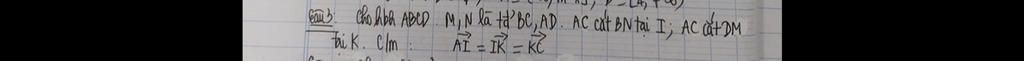 Câu 3: Cho hbh ABCD. M, N là tđ BC, AD. AC cắt BN tại I; AC cắt DM
tại K. C/m: AI = IK = KC